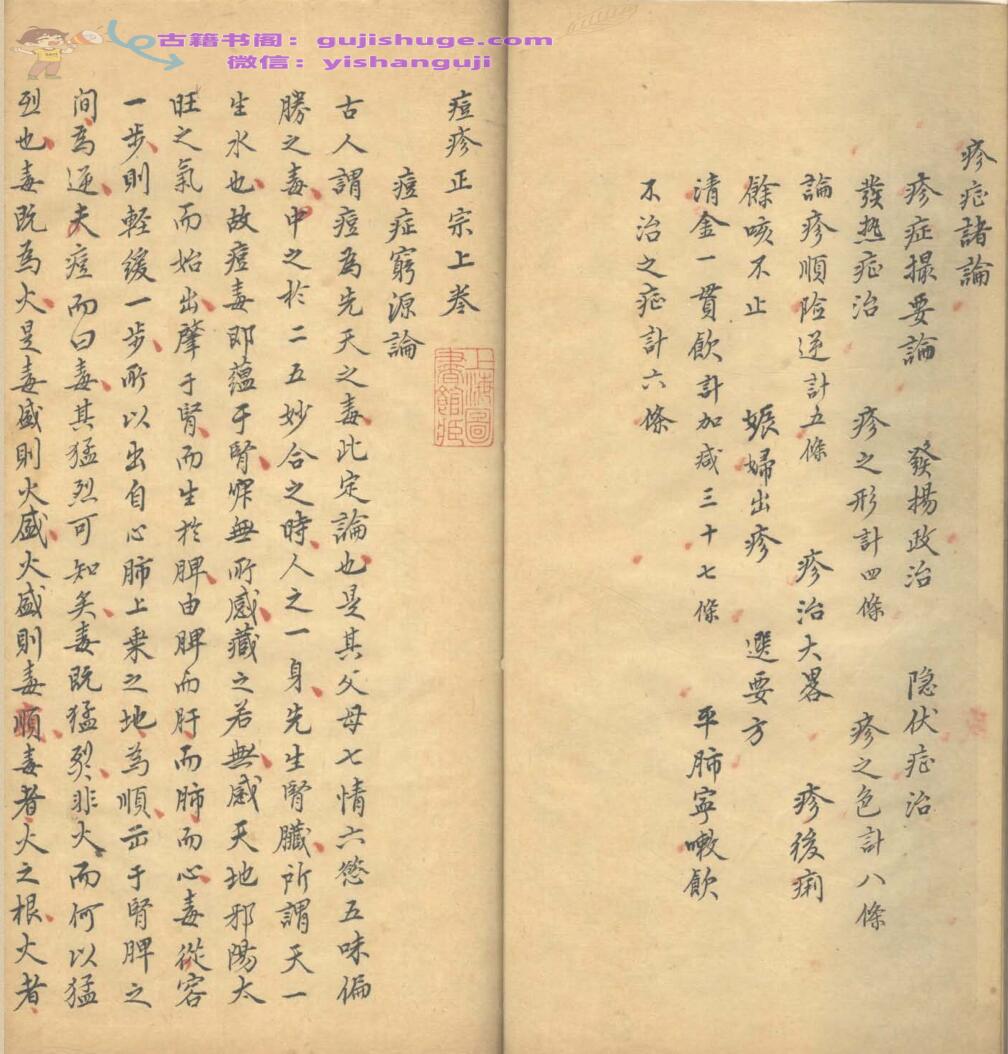 古籍书阁：gujishuge.com
微信：yishanguji
疹症諸論
疹症撮要論 發揚政治 隐伏症治
發热症治 疹之形計四條 疹之色計八條
論疹順险逆計五條 疹治大畧 疹後痢
餘咳不止 娠婦出疹 選要方
清金一貫飲計加减三十七條 平肺寧嗽飲
不治之症計六條
痘疹正宗上卷
上海圖書館藏
痘症窮源論
古人謂痘為先天之毒此定論也是其父母七情六慾五味偏
勝之毒中之於二五妙合之時人之一身先生腎臟所謂天一
生水也故痘毒即蘊于腎第無所感藏之若無感天地邪陽太
旺之氣而始出肇于腎而生於脾由脾而肝而肺而心毒從容
一步則軽緩一步所以出自心肺上乗之地為順出于腎脾之
间為逆夫痘而曰毒其猛烈可知矣毒既猛烈非火而何以猛
烈也毒既為火是毒盛則火盛火盛則毒順毒者火之根火者